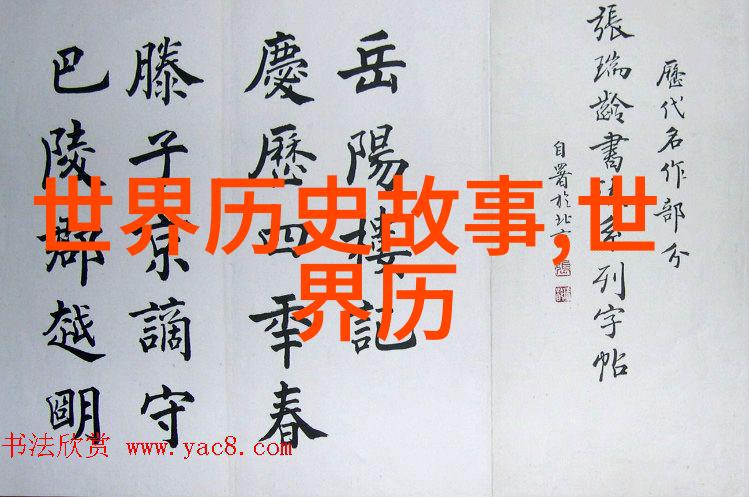 歷代名作部分
張瑞齡書法系列字帖
自署於北
岳陽樓記
慶歷四年春
滕子京謫守
巴陵郡越明
世界历史故事,世
界历
书法欣赏 www.yac8.com